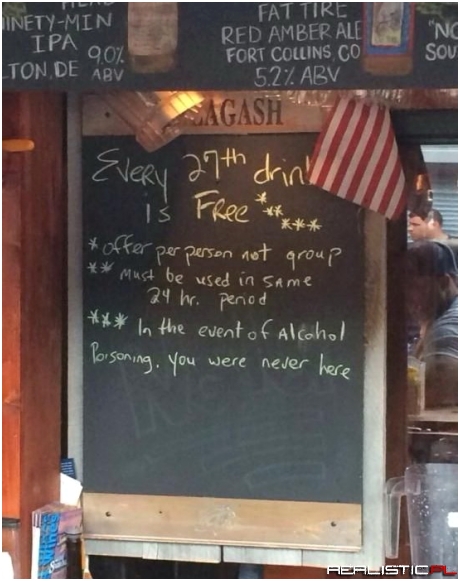 NINETY-MIN
IPA
9.0%
LTON, DE ABV
FAT TIRE
RED AMBER ALE
FORT COLLINS, CO
5.2% ABV
"NO
SOU
AGASH
Every 27th drin
is Free * ** ***
* offer per person not group
** Must be used in same
24 hr. period
*** In the event of Alcohol
Poisoning, you were never here
REALISTICPL